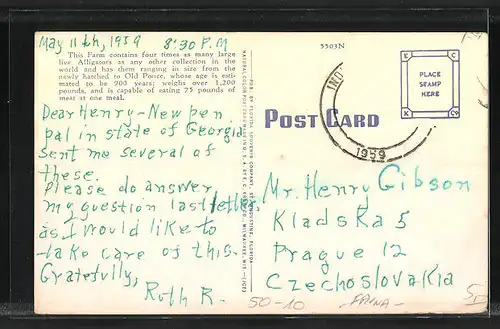 May 11th, 1959 8:30 P.M
This Farm contains four times as many large
live Alligators as any other collection in the
world and has them ranging in size from the
newly hatched to Old Ponce, whose age is esti-
mated to be 900 years; weighs over 1,200
pounds, and is capable of eating 75 pounds of
meat at one meal.
Dear Henry-New pen
pal in state of Georgia
sent me several of
these.
Please do answer
my question last letter,
as I would like to
take care of this.
Gratefully,
Ruth R.
5503N
POST CARD
PLACE
STAMP
HERE
1959
Mr. Henry Gibson
Kladska 5
Prague 12
Czechoslovakia
50-10
FAUNA